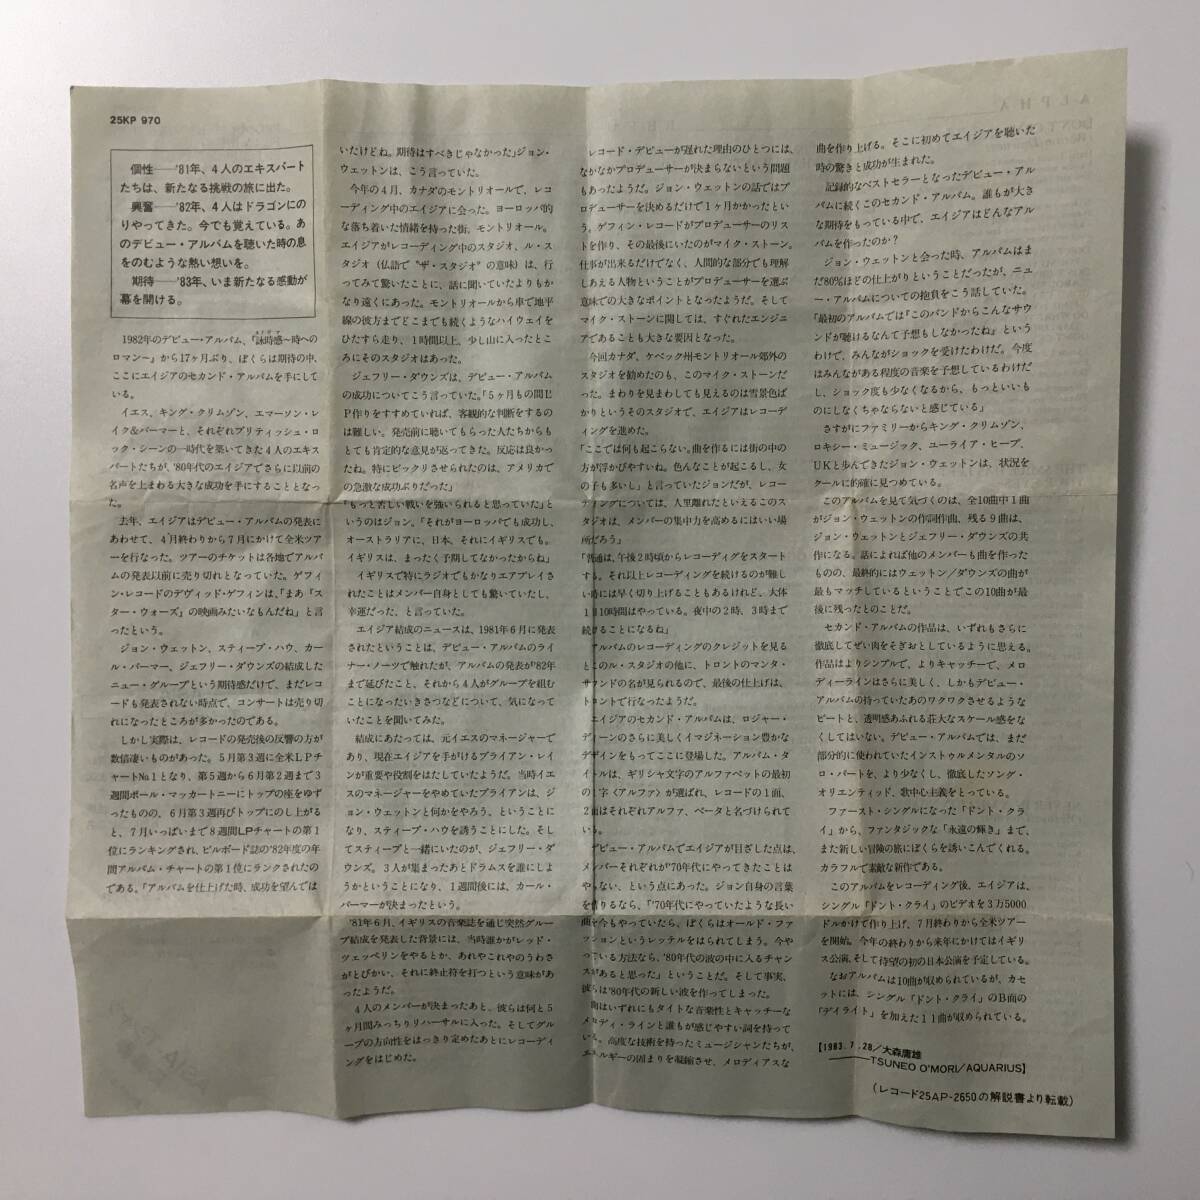 25KP 970
個性——'81年、4人のエキスパート
たちは、新たなる挑戦の旅に出た。
興奮——'82年、4人はドラゴンにの
りやってきた。今でも覚えている。あ
のデビュー・アルバムを聴いた時の息
をのむような熱い想いを。
期待——'83年、いま新たなる感動が
幕を開ける。
1982年のデビュー・アルバム、『詠時感〜時への
ロマン〜』から17ヶ月ぶり、ぼくらは期待の中、
ここにエイジアのセカンド・アルバムを手にして
いる。
イエス、キング・クリムゾン、エマーソン・レ
イク&パーマーと、それぞれブリティッシュ・ロ
ック・シーンの一時代を築いてきた4人のエキス
パートたちが、'80年代のエイジアでさらに以前の
名声を上まわる大きな成功を手にすることとなっ
た。
去年、エイジアはデビュー・アルバムの発表に
あわせて、4月終わりから7月にかけて全米ツア
ーを行なった。ツアーのチケットは各地でアルバ
ムの発表以前に売り切れとなっていた。ゲフィ
ン・レコードのデヴィッド・ゲフィンは、「まあ『ス
ター・ウォーズ』の映画みたいなもんだね」と言
ったという。
ジョン・ウェットン、スティーブ・ハウ、カー
ル・パーマー、ジェフリー・ダウンズの結成した
ニュー・グループという期待感だけで、まだレコ
ードも発表されない時点で、コンサートは売り切
れになったところが多かったのである。
しかし実際は、レコードの発売後の反響の方が
数倍凄いものがあった。5月第3週に全米LPチ
ャートNo.1となり、第5週から6月第2週まで3
週間ポール・マッカートニーにトップの座をゆず
ったものの、6月第3週再びトップにのし上がる
と、7月いっぱいまで8週間LPチャートの第1
位にランキングされ、ビルボード誌の'82年度の年
間アルバム・チャートの第1位にランクされたの
である。「アルバムを仕上げた時、成功を望んでは
いたけどね。期待はすべきじゃなかった」ジョン・
ウェットンは、こう言っていた。
今年の4月、カナダのモントリオールで、レコ
ーディング中のエイジアに会った。ヨーロッパ的
な落ち着いた情緒を持った街、モントリオール。
エイジアがレコーディング中のスタジオ、ル・ス
タジオ(仏語で〝ザ・スタジオ〟の意味)は、行
ってみて驚いたことに、話に聞いていたよりもか
なり遠くにあった。モントリオールから車で地平
線の彼方までどこまでも続くようなハイウェイを
ひたすら走り、1時間以上、少し山に入ったとこ
ろにそのスタジオはあった。
ジェフリー・ダウンズは、デビュー・アルバム
の成功についてこう言っていた。「5ヶ月もの間L
P作りをすすめていれば、客観的な判断をするの
は難しい。発売前に聴いてもらった人たちからも
とても肯定的な意見が返ってきた。反応は良かっ
たね。特にビックリさせられたのは、アメリカで
の急激な成功ぶりだった」
「もっと苦しい戦いを強いられると思っていた」と
いうのはジョン。「それがヨーロッパでも成功し、
オーストラリアに、日本、それにイギリスでも。
イギリスは、まったく予期してなかったからね」
イギリスで特にラジオでもかなりエアプレイさ
れたことはメンバー自身としても驚いていたし、
幸運だった、と言っていた。
エイジア結成のニュースは、1981年6月に発表
されたということは、デビュー・アルバムのライ
ナー・ノーツで触れたが、アルバムの発表が'82年
まで延びたこと、それから4人がグループを組む
ことになったいきさつなどについて、気になって
いたことを聞いてみた。
結成にあたっては、元イエスのマネージャーで
あり、現在エイジアを手がけるブライアン・レイ
ンが重要や役割をはたしていたようだ。当時イエ
スのマネージャーをやめていたブライアンは、ジ
ョン・ウェットンと何かをやろう、ということに
なり、スティーブ・ハウを誘うことにした。そし
てスティーブと一緒にいたのが、ジェフリー・ダ
ウンズ。3人が集まったあとドラムスを誰にしよ
うかということになり、1週間後には、カール・
パーマーが決まったという。
'81年6月、イギリスの音楽誌を通じ突然グルー
プ結成を発表した背景には、当時誰かがレッド・
ツェッペリンをやるとか、あれやこれやのうわさ
がとびかい、それに終止符を打つという意味があ
ったようだ。
4人のメンバーが決まったあと、彼らは何と5
ヶ月間みっちりリハーサルに入った。そしてグル
ープの方向性をはっきり定めたあとにレコーディ
ングをはじめた。
レコード・デビューが遅れた理由のひとつには、
なかなかプロデューサーが決まらないという問題
もあったようだ。ジョン・ウェットンの話ではプ
ロデューサーを決めるだけで1ヶ月かかったとい
う。ゲフィン・レコードがプロデューサーのリス
トを作り、その最後にいたのがマイク・ストーン。
仕事が出来るだけでなく、人間的な部分でも理解
しあえる人物ということがプロデューサーを選ぶ
意味での大きなポイントとなったようだ。そして
マイク・ストーンに関しては、すぐれたエンジニ
アであることも大きな要因となった。
今回カナダ、ケベック州モントリオール郊外の
スタジオを勧めたのも、このマイク・ストーンだ
った。まわりを見まわしても見えるのは雪景色ば
かりというそのスタジオで、エイジアはレコーデ
ィングを進めた。
「ここでは何も起こらない。曲を作るには街の中の
方が浮かびやすいね。色んなことが起こるし、女
の子も多いし」と言っていたジョンだが、レコー
ディングについては、人里離れたといえるこのス
タジオは、メンバーの集中力を高めるにはいい場
所だろう」
「普通は、午後2時頃からレコーディグをスタート
する。それ以上レコーディングを続けるのが難し
い時には早く切り上げることもあるけれど、大体
1日10時間はやっている。夜中の2時、3時まで
続けることになるね」
アルバムのレコーディングのクレジットを見る
とこのル・スタジオの他に、トロントのマンタ・
サウンドの名が見られるので、最後の仕上げは、
トロントで行なったようだ。
エイジアのセカンド・アルバムは、ロジャー・
ディーンのさらに美しくイマジネーション豊かな
デザインをもってここに登場した。アルバム・タ
イトルは、ギリシャ文字のアルファベットの最初
の1字〈アルファ〉が選ばれ、レコードの1面、
2面はそれぞれアルファ、ベータと名づけられて
いる。
デビュー・アルバムでエイジアが目ざした点は、
メンバーそれぞれが'70年代にやってきたことは
やらない、という点にあった。ジョン自身の言葉
を借りるなら、「'70年代にやっていたような長い
曲を今もやっていたら、ぼくらはオールド・ファ
ッションというレッテルをはられてしまう。今や
っている方法なら、'80年代の波の中に入るチャン
スがあると思った」ということだ。そして事実、
彼らは'80年代の新しい波を作ってしまった。
曲はいずれにもタイトな音楽性とキャッチーな
メロディ・ラインと誰もが感じやすい詞を持って
いる。高度な技術を持ったミュージシャンたちが、
エネルギーの固まりを凝縮させ、メロディアスな
曲を作り上げる。そこに初めてエイジアを聴いた
時の驚きと成功が生まれた。
記録的なベストセラーとなったデビュー・アル
バムに続くこのセカンド・アルバム。誰もが大き
な期待をもっている中で、エイジアはどんなアル
バムを作ったのか?
ジョン・ウェットンと会った時、アルバムはま
だ80%ほどの仕上がりということだったが、ニュ
ー・アルバムについての抱負をこう話していた。
「最初のアルバムでは『このバンドからこんなサウ
ンドが聴けるなんて予想もしなかったね』という
わけで、みんながショックを受けたわけだ。今度
はみんながある程度の音楽を予想しているわけだ
し、ショック度も少なくなるから、もっといいも
のにしなくちゃならないと感じている」
さすがにファミリーからキング・クリムゾン、
ロキシー・ミュージック、ユーライア・ヒープ、
UKと歩んできたジョン・ウェットンは、状況を
クールに的確に見つめている。
このアルバムを見て気づくのは、全10曲中1曲
がジョン・ウェットンの作詞作曲、残る9曲は、
ジョン・ウェットンとジェフリー・ダウンズの共
作になる。話によれば他のメンバーも曲を作った
ものの、最終的にはウェットン/ダウンズの曲が
最もマッチしているということでこの10曲が最
後に残ったとのことだ。
セカンド・アルバムの作品は、いずれもさらに
徹底してぜい肉をそぎおとしているように思える。
作品はよりシンプルで、よりキャッチーで、メロ
ディーラインはさらに美しく、しかもデビュー・
アルバムの持っていたあのワクワクさせるような
ビートと、透明感あふれる荘大なスケール感をな
くしてはいない。デビュー・アルバムでは、まだ
部分的に使われていたインストゥルメンタルのソ
ロ・パートを、より少なくし、徹底したソング・
オリエンティッド、歌中心主義をとっている。
ファースト・シングルになった「ドント・クラ
イ」から、ファンタジックな「永遠の輝き」まで、
また新しい冒険の旅にぼくらを誘いこんでくれる。
カラフルで素敵な新作である。
このアルバムをレコーディング後、エイジアは、
シングル「ドント・クライ」のビデオを3万5000
ドルかけて作り上げ、7月終わりから全米ツアー
を開始。今年の終わりから来年にかけてはイギリ
ス公演、そして待望の初の日本公演を予定している。
なおアルバムは10曲が収められているが、カセ
ットには、シングル「ドント・クライ」のB面の
「デイライト」を加えた11曲が収められている。
【1983.7.28/大森庸雄
——TSUNEO O'MORI/AQUARIUS】
(レコード25AP-2650の解説書より転載)